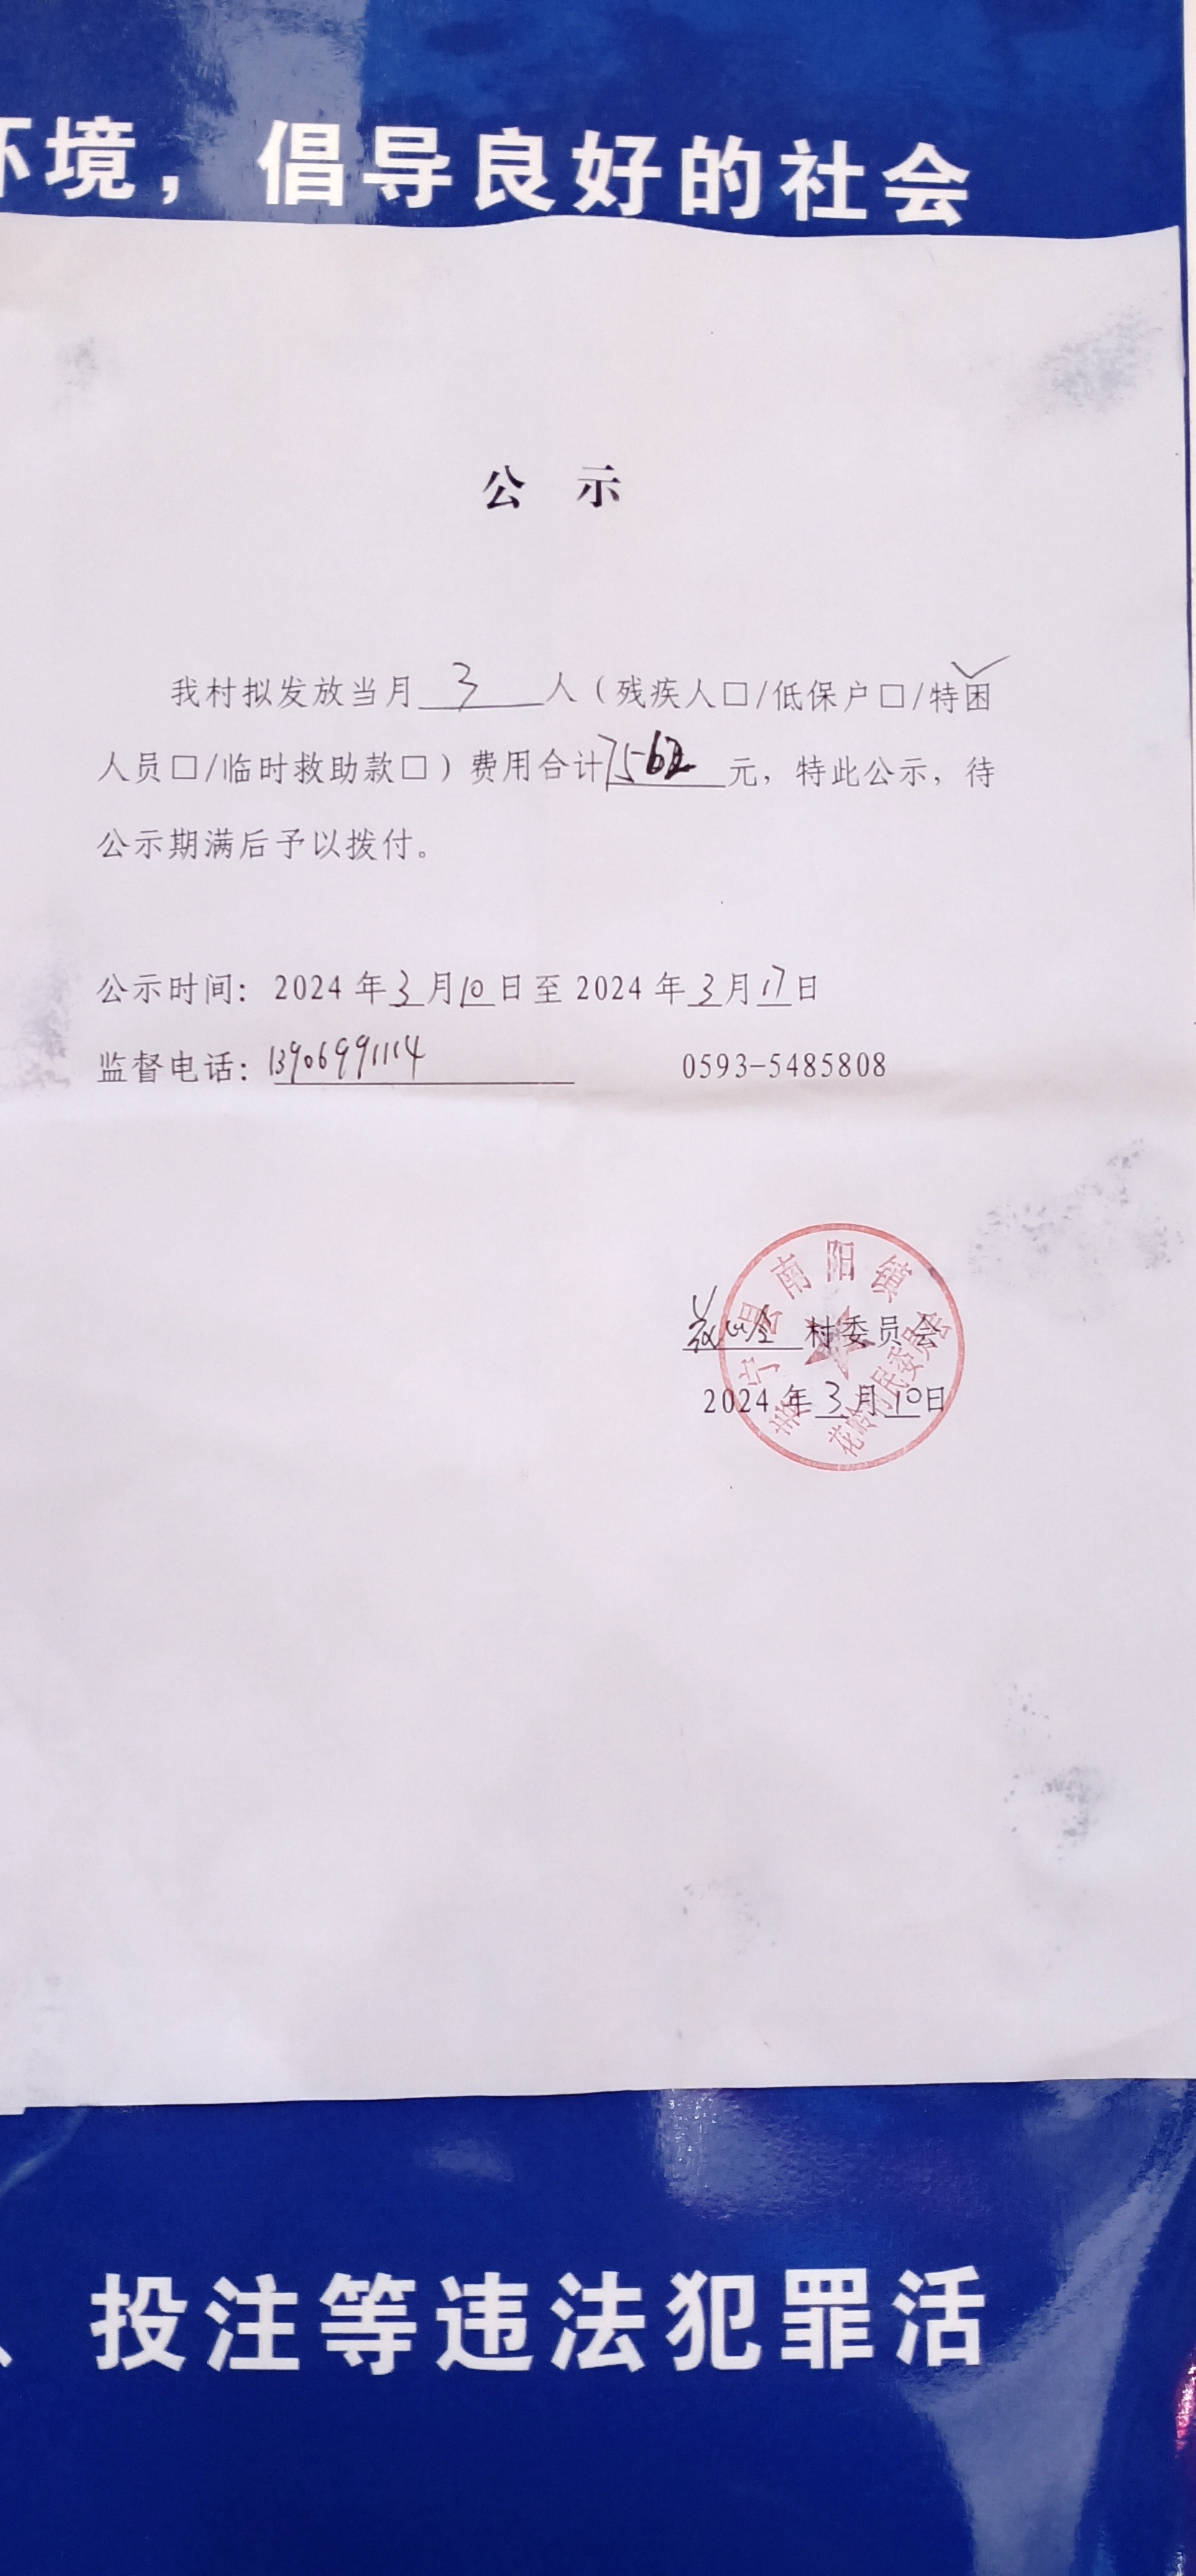 环境，倡导良好的社会
公 示
我村拟发放当月 3 人（残疾人□/低保户□/特困
人员□/临时救助款□）费用合计7562元，特此公示，待
公示期满后予以拨付。
公示时间：2024年3月10日至2024年3月17日
监督电话：13906991114 0593-5485808
寿宁县南阳镇
花岭村民委员会
花岭 村委员会
2024年3月10日
、投注等违法犯罪活